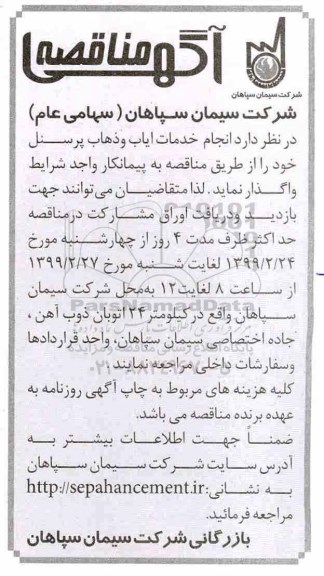 آگهی مناقصه
شرکت سیمان سپاهان
شرکت سیمان سپاهان (سهامی عام)
در نظر دارد انجام خدمات ایاب وذهاب پرسنل
خود را از طریق مناقصه به پیمانکار واجد شرایط
واگذار نماید. لذا متقاضیان می توانند جهت
بازدید ودریافت اوراق مشارکت درمناقصه
حداکثر ظرف مدت ۴ روز از چهارشنبه مورخ
۱۳۹۹/۲/۲۴ لغایت شنبه مورخ ۱۳۹۹/۲/۲۷
از ساعت ۸ لغایت ۱۲ به محل شرکت سیمان
سپاهان واقع در کیلومتر ۲۳ اتوبان ذوب آهن ،
جاده اختصاصی سیمان سپاهان، واحد قراردادها
وسفارشات داخلی مراجعه نمایند.
کلیه هزینه های مربوط به چاپ آگهی روزنامه به
عهده برنده مناقصه می باشد.
ضمناً جهت اطلاعات بیشتر به
آدرس سایت شرکت سیمان سپاهان
به نشانی: http://sepahancement.ir
مراجعه فرمائید.
بازرگانی شرکت سیمان سپاهان
ParsNamadData